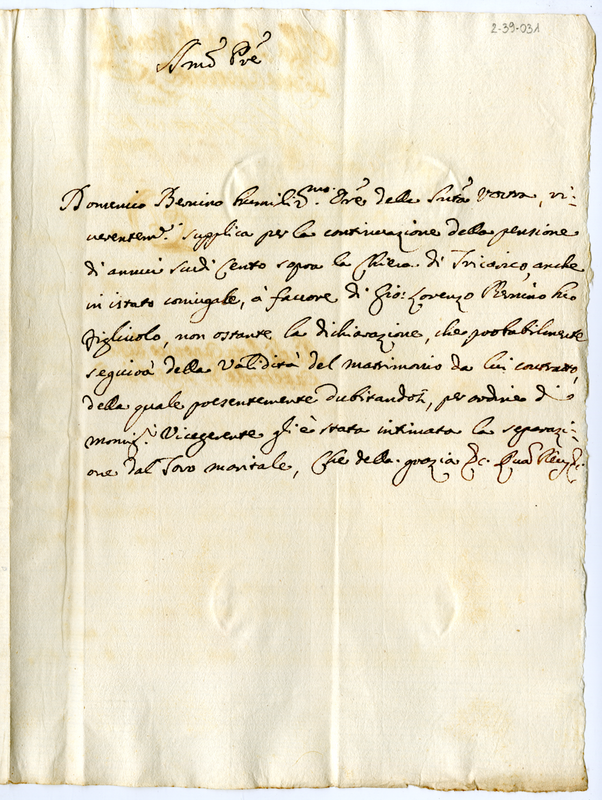 2-39-031
Bmo Pre
Domenico Bernino humiliss.mo Ore della Santa Vostra, ri=
verentem.e supplica per la continuazione della pensione
di annui scudi Cento sopra la Chiesa di Tricarico, anche
in istato coniugale, à favore di Gio: Lorenzo Bernino suo
figliuolo, non ostante la dichiarazione, che probabilmente
seguirà della Validità del matrimonio da lui contratto,
della quale presentemente dubitandosi, per ordine di
monsig.r Vicegerente gli è stata intimata la separazi=
one dal Toro maritale, Che della grazia &c. Quam Deus &c.